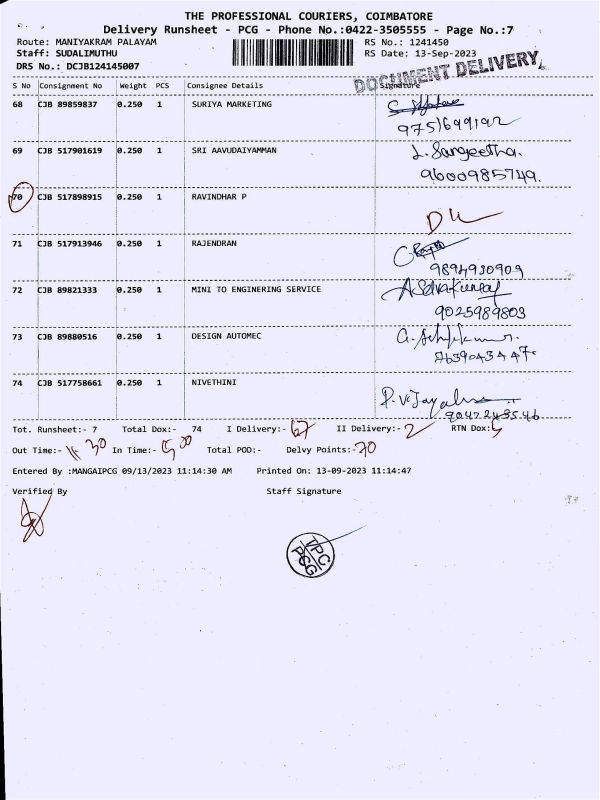 THE PROFESSIONAL COURIERS, COIMBATORE
Delivery Runsheet - PCG - Phone No.:0422-3505555 - Page No.:7
Route: MANIYAKRAM PALAYAM RS No.: 1241450
Staff: SUDALIMUTHU RS Date: 13-Sep-2023
DRS No.: DCJB124145007
DOCUMENT DELIVERY
S No Consignment No Weight PCS Consignee Details Signature
68 CJB 89859837 0.250 1 SURIYA MARKETING
9751649192
69 CJB 517901619 0.250 1 SRI AAVUDAIYAMMAN L. Sangeetha.
9600985749.
70 CJB 517898915 0.250 1 RAVINDHAR P
DL
71 CJB 517913946 0.250 1 RAJENDRAN
9894930909
72 CJB 89821333 0.250 1 MINI TO ENGINERING SERVICE A Selvakumar
9025989803
73 CJB 89880516 0.250 1 DESIGN AUTOMEC
74 CJB 517758661 0.250 1 NIVETHINI
P. Vijayalu
Tot. Runsheet:- 7 Total Dox:- 74 I Delivery:- 67 II Delivery:- 2 RTN Dox: 5
Out Time:- 11 30 In Time:- 5 00 Total POD:- Delvy Points:- 70
Entered By :MANGAIPCG 09/13/2023 11:14:30 AM Printed On: 13-09-2023 11:14:47
Verified By Staff Signature
TPC
PCG